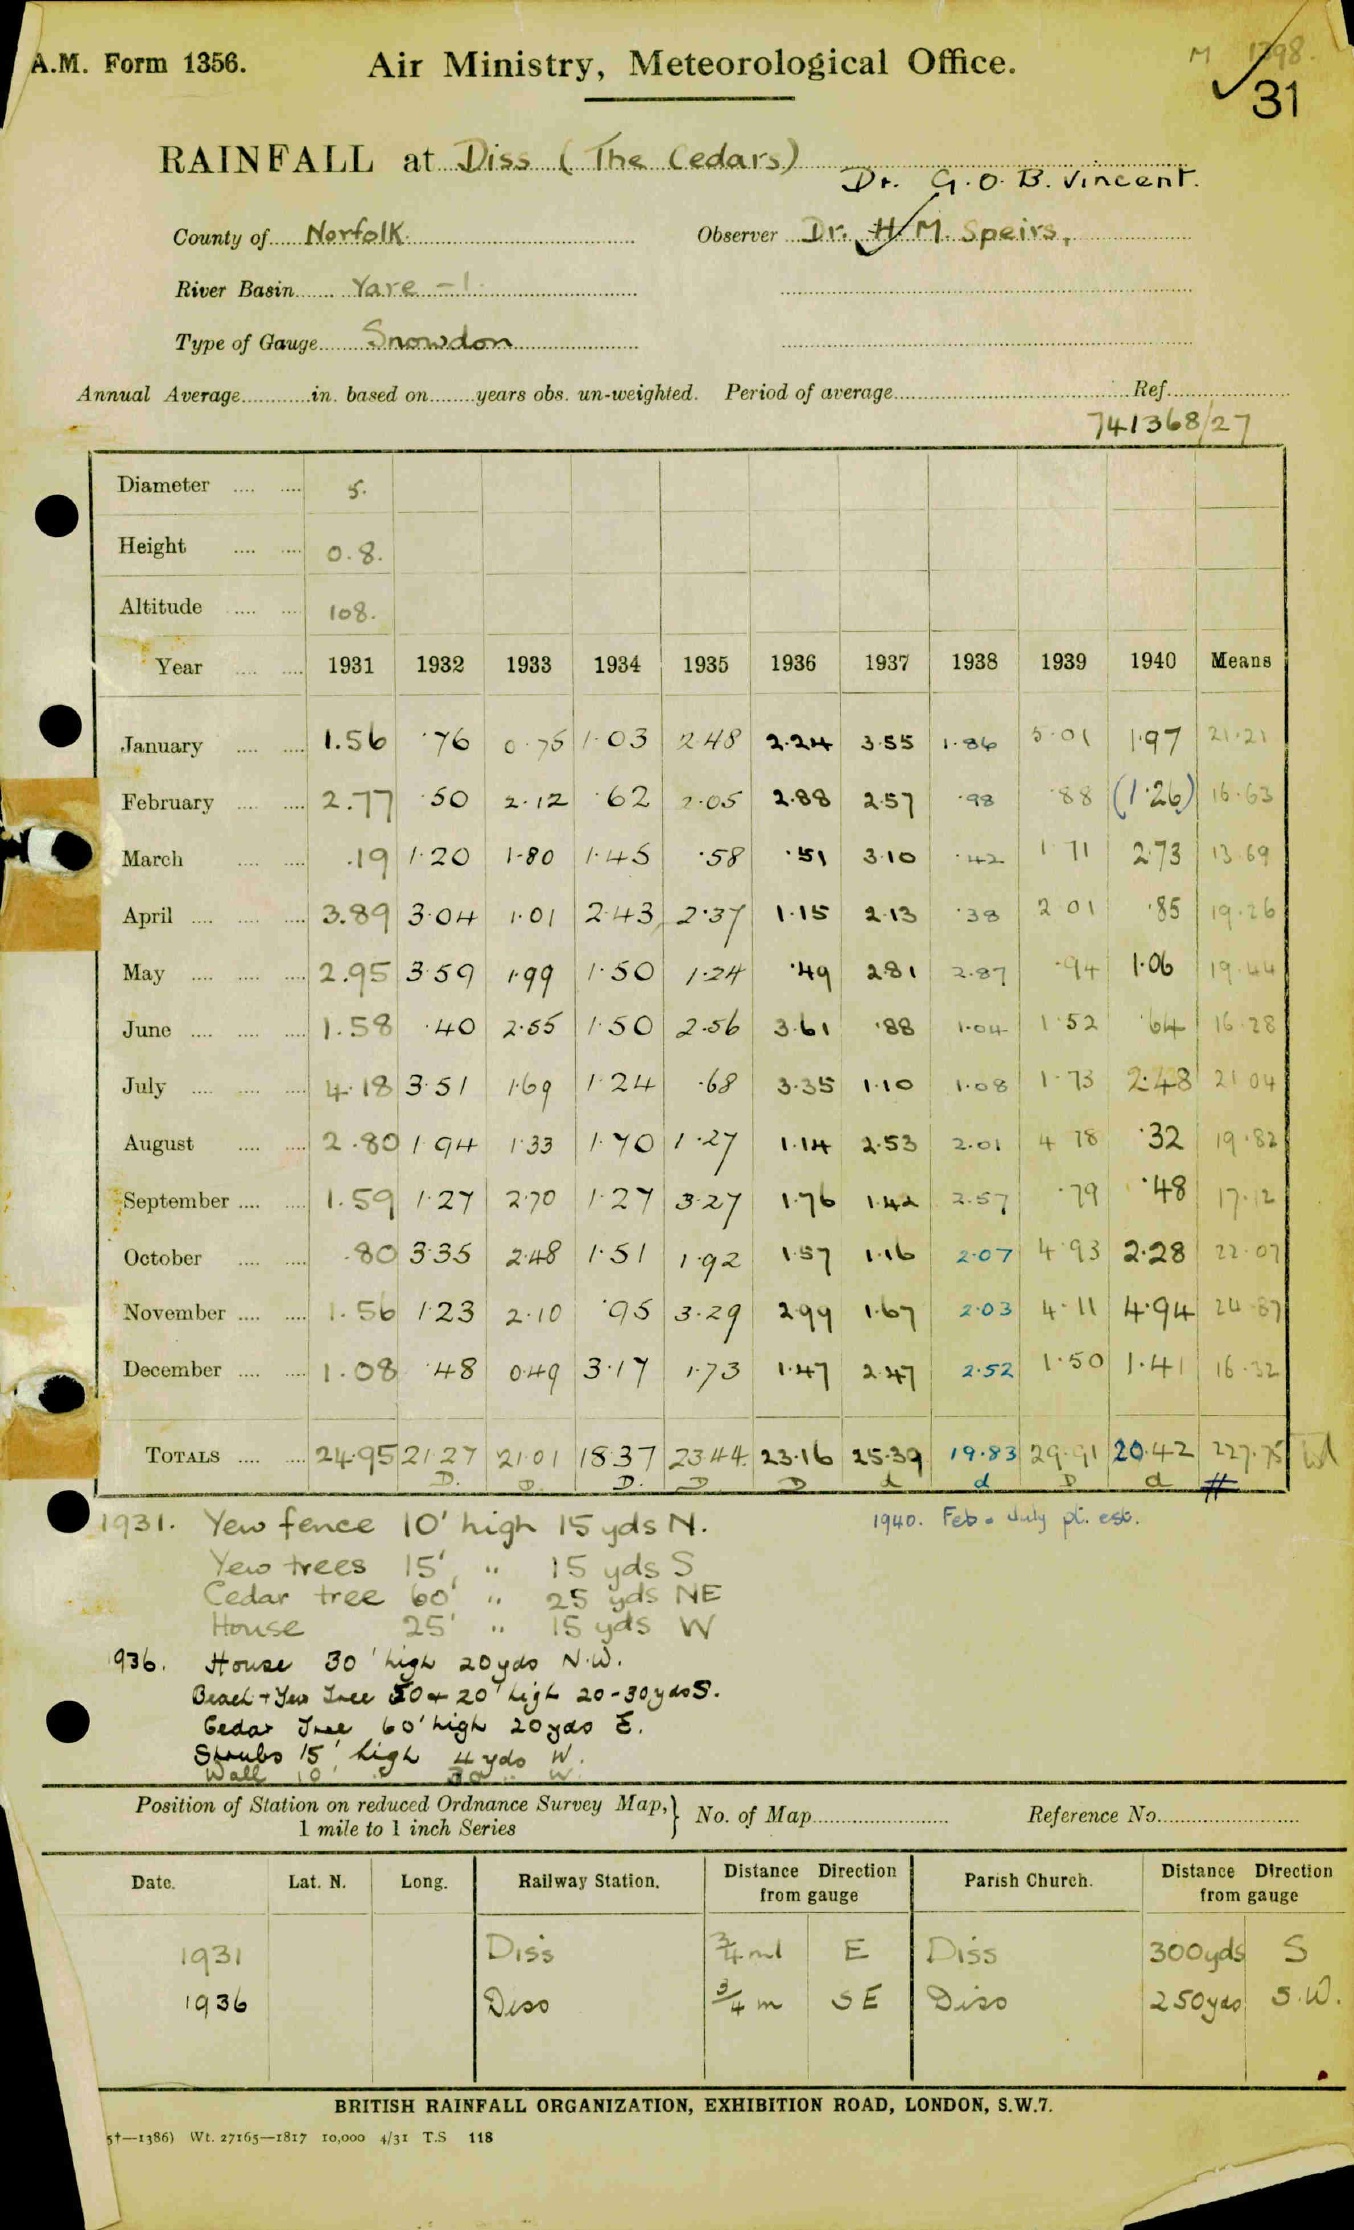 A.M. Form 1356.
Air Ministry, Meteorological Office.
31
RAINFALL at Diss (The Cedars)
Dr. G.O.B. Vincent.
County of Norfolk. Observer Dr. H.M. Speirs,
River Basin Yare - 1.
Type of Gauge Snowdon
Annual Average in. based on years obs. un-weighted. Period of average Ref.
741368/27
Diameter 5.
Height 0.8.
Altitude 108.
Year 1931 1932 1933 1934 1935 1936 1937 1938 1939 1940 Means
January 1.56 .76 0.75 1.03 2.48 2.24 3.55 1.86 5.01 1.97 21.21
February 2.77 .50 2.12 .62 2.05 2.88 2.57 .98 .88 (1.26) 16.63
March .19 1.20 1.80 1.45 .58 .51 3.10 .42 1.71 2.73 13.69
April 3.89 3.04 1.01 2.43 2.37 1.15 2.13 .38 2.01 .85 19.26
May 2.95 3.59 1.99 1.50 1.24 .49 2.81 2.87 .94 1.06 19.44
June 1.58 .40 2.55 1.50 2.56 3.61 .88 1.04 1.52 .64 16.28
July 4.18 3.51 1.69 1.24 .68 3.35 1.10 1.08 1.73 2.48 21.04
August 2.80 1.94 1.33 1.70 1.27 1.14 2.53 2.01 4.78 .32 19.82
September 1.59 1.27 2.70 1.27 3.27 1.76 1.42 2.57 .79 .48 17.12
October .80 3.35 2.48 1.51 1.92 1.57 1.16 2.07 4.93 2.28 22.07
November 1.56 1.23 2.10 .95 3.29 2.99 1.67 2.03 4.11 4.94 24.87
December 1.08 .48 0.49 3.17 1.73 1.47 2.47 2.52 1.50 1.41 16.32
TOTALS 24.95 21.27 21.01 18.37 23.44. 23.16 25.39 19.83 29.91 20.42 227.75
D. D. D. D D d d D d #
1931. Yew fence 10' high 15 yds N. 1940. Feb. July pt. est.
Yew trees 15' " 15 yds S
Cedar tree 60' " 25 yds NE
House 25' " 15 yds W
1936. House 30' high 20 yds N.W.
Beach + Yew Tree 50 + 20' high 20-30 yds S.
Cedar Tree 60' high 20 yds E.
Shrubs 15' high 4 yds W.
Wall 10' " 30 " W.
Position of Station on reduced Ordnance Survey Map, } No. of Map Reference No.
1 mile to 1 inch Series
Date. Lat. N. Long. Railway Station. Distance Direction from gauge Parish Church. Distance Direction from gauge
1931 Diss 3/4 ml E Diss 300yds S
1936 Diss 3/4 m SE Diss 250yds S.W.
BRITISH RAINFALL ORGANIZATION, EXHIBITION ROAD, LONDON, S.W.7.
5†—1386) Wt. 27165—1817 10,000 4/31 T.S 118